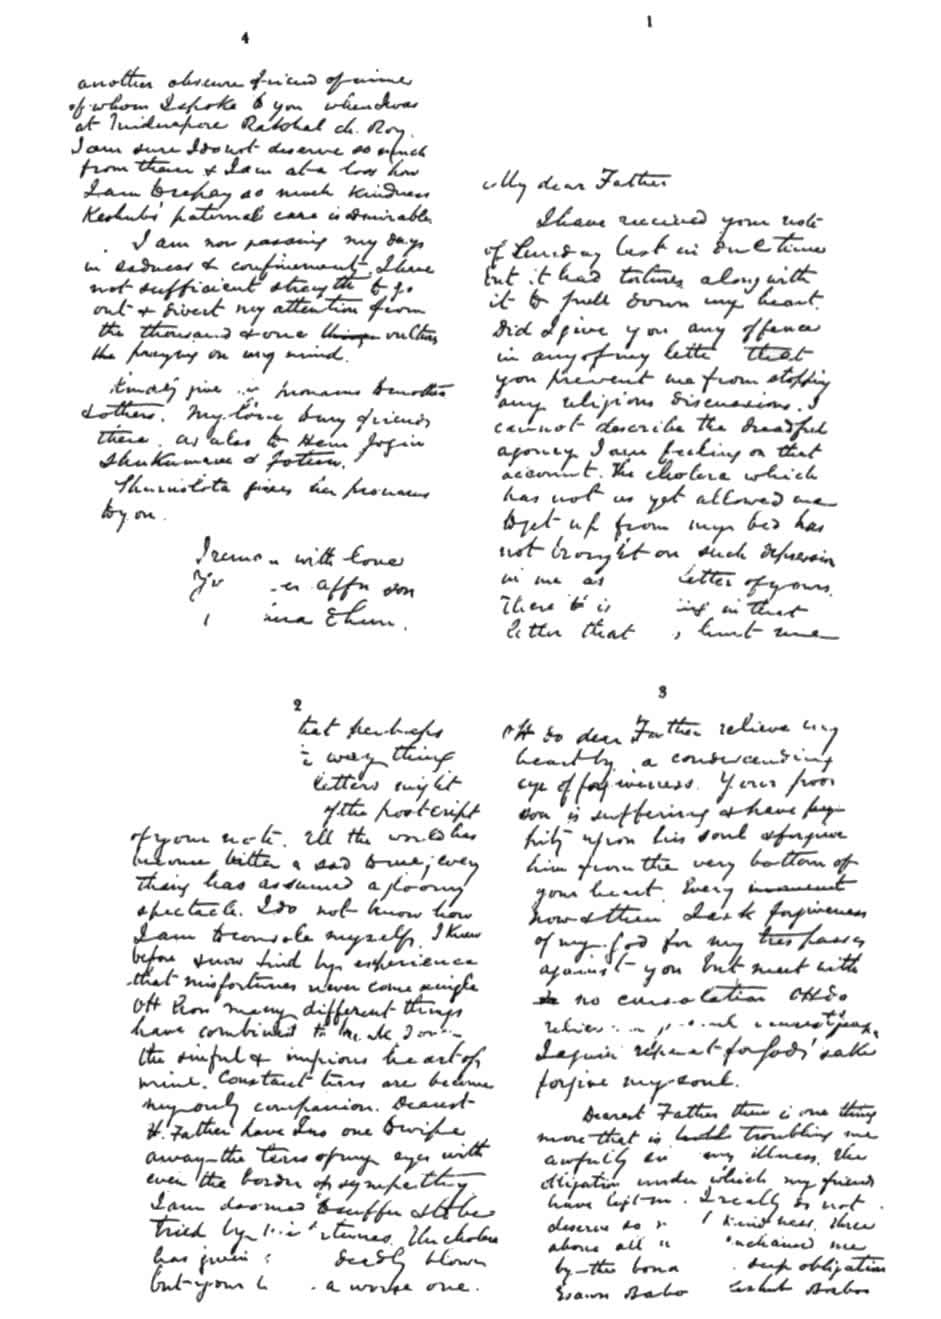 1
My dear Father
I have received your note
of Sunday last in due time
but it had tortures along with
it to pull down my heart.
Did I give you any offence
in any of my letter that
you prevent me from stopping
any religious discussions. I
cannot describe the dreadful
agony I am feeling on that
account. The cholera which
has not as yet allowed me
to get up from my bed has
not brought on such depression
in me as letter of yours.
There is in that
letter that hurt me
2
that perhaps
thing
letters might
of the postcript
of your note. All the world has
become bitter & sad to me; every
thing has assumed a gloomy
spectacle. I do not know how
I am to console myself. I knew
before & now find by experience
that misfortunes never come single
Oh how many different things
have combined to
the sinful & impious heart of
mine. Constant tears are become
my only companion. Dearest
H. Father have I no one to wipe
away the tears of my eyes with
even the border of sympathy
I am doomed to suffer & to be
tried by The cholera
has given deadly blow
but your a worse one.
3
Oh do dear Father relieve my
heart by a condescending
eye of forgiveness. Your poor
son is suffering & have
pity upon his soul & forgive
him from the very bottom of
your heart. Every moment
now & then I ask forgiveness
of my God for my trespasses
against you but meet with
no consolation Oh do

I again repeat for God's sake
forgive my soul.
Dearest Father there is one thing
more that is troubling me
awfully in my illness. The
obligation under which my friends
have kept me. I really do not
deserve so kindness. Three
above all enchained me
by the bond deep obligation
Babo Keshub Baboo
4
another obscure friend of mine
of whom I spoke to you when I was
at Midnapore Rakhal ch. Roy.
I am sure I do not deserve so much
from them & I am at a loss how
I am to repay so much kindness
Keshub's paternal care is admirable.
I am now passing my days
in sadness & confinement. I have
not sufficient strength to go
out & divert my attention from
the thousand & one vultures
preying on my mind.
Kindly give pronams to mother
& others. My love to my friends
there. as also to Hem Jogin
Shukumari &
gives her pronams
to you.
I remain with love
affn son